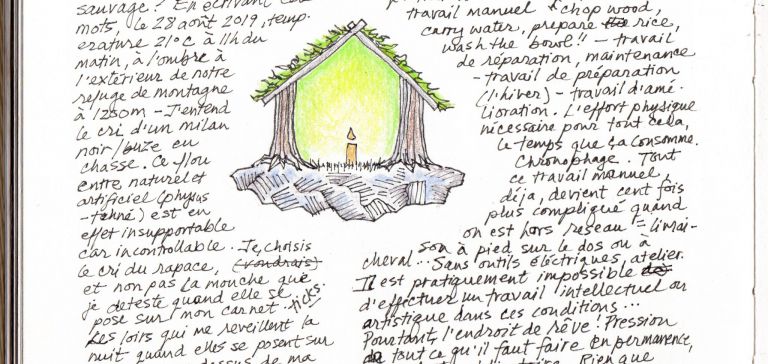 sauvage? En écrivant ces
mots, le 28 août 2019, temp.
erature 21°C à 11h du
matin, à l'ombre à
l'extérieur de notre
refuge de montagne
à 1250m - J'entend
le cri d'un milan
noir/buze en
chasse. Ce flou
entre naturel et
artificiel (physus
-tekné) est en
effet insupportable
car incontrollable. Je choisis
le cri du rapace, (voudrais)
et non pas la mouche que
je déteste quand elle se
pose sur mon carnet. :TICKS.
Les loirs qui me reveillent la
nuit quand elles se posent sur
dessus de ma
travail manuel "chop wood,
carry water, prepare the rice,
wash the bowl!" - travail
de réparation, maintenance
- travail de préparation
(l'hiver) - travail d'amé.
lioration. L'effort physique
nécessaire pour tout cela,
le temps que ça consomme.
Chronophage. Tout
ce travail manuel,
déja, devient cent fois
plus compliqué quand
on est hors réseau = livrai-
son à pied sur le dos ou à
cheval... Sans outils électriques, atelier.
Il est pratiquement impossible de
d'effectuer un travail intellectuel ou
artistique dans ces conditions...
Pourtant, l'endroit de rêve! Pression
de tout ce qu'il faut faire en permanence,
Rien que